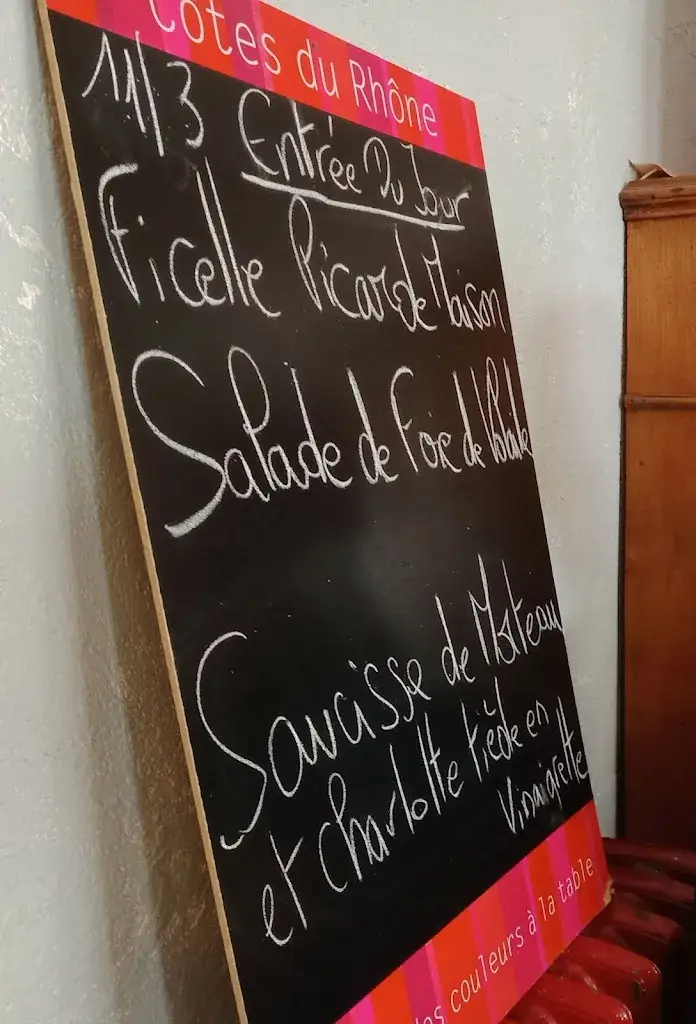 Côtes du Rhône
11/3 Entrée Du Jour
Ficelle Picarde Maison
Salade de Foie de Volaille
Saucisse de Morteau
et charlotte tiède en
Vinaigrette
des couleurs à la table